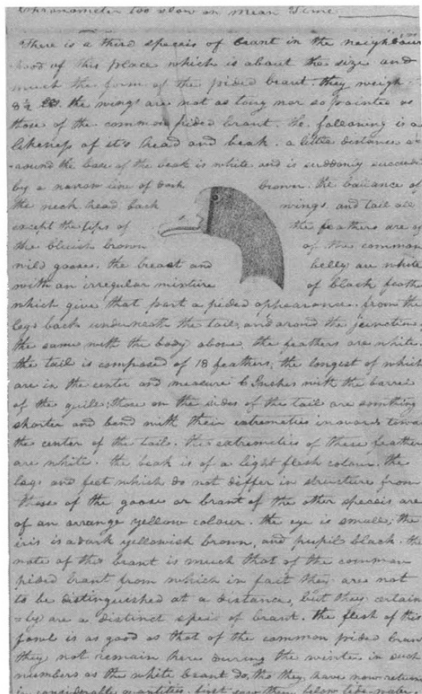 Chronometer too slow on Mean Time
There is a third species of brant in the neighbour
hood of this place which is about the size and
much the form of the pided brant. they weigh
the wings are not as long nor so pointed as
those of the common pided brant. the following is a
likeness of it's head and beak. a little distance
around the base of the beak is white and is suddonly succeed
by a narrow line of dark brown. the ballance of
the neck head back wings and tail all
except the tips of the feathers are of
the bluish brown of the common
wild goose. the breast and belly are white
with an irregular mixture of black feath
which give that part a pided appearance. from the
legs back underneath the tail, and around the junction
the same with the body above the feathers are white.
the tail is composed of 18 feathers; the longest of which
are in the center and measure 6 Inches with the barrel
of the quill; those on the sides of the tail are something
shorter and bend with their extremeties inwards towa
the center of the tail. the extremeties of these feather
are white. the beak is of a light flesh colour. the
legs and feet which do not differ in structure from
those of the goose or brant of the other species are
of an arrange yellow colour. the eye is small; the
iris is a dark yellowish brown, and pupil black. the
note of this brant is much that of the common
pided brant from which in fact they are not
to be distinguished at a distance, but they certain
ly are a distinct species of brant. the flesh of this
fowl is as good as that of the common pided bran
they not remain here during the winter in such
numbers as the white brant do, tho' they have now return
in considerable quantities. first saw this below tide-water.